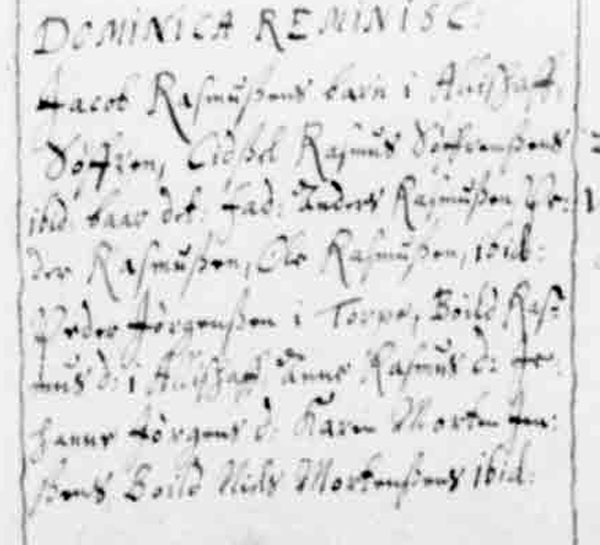 DOMINICA REMINISC:
Jacob Rasmußens barn i
Søffren, Rasmus Søffrenßens
ibid: baar det. fad: Anders Rasmußen, Pe-
der Rasmußen, Ole Rasmußen, ibid:
Peder Jørgenßen i Torpe, Boild Raß-
mus d: i Anne Rasmus d: Jo-
hanne Jørgens d: Karen Morten Jen-
ßens Boild Niels Mortenßens ibid: